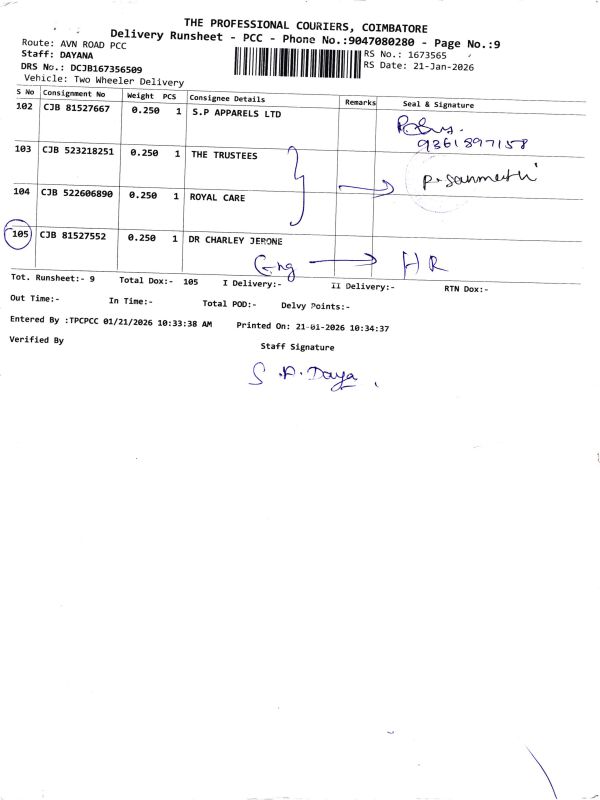 THE PROFESSIONAL COURIERS, COIMBATORE
Delivery Runsheet - PCC - Phone No.:9047080280 - Page No.:9
Route: AVN ROAD PCC
RS No.: 1673565
Staff: DAYANA
RS Date: 21-Jan-2026
DRS No.: DCJB167356509
Vehicle: Two Wheeler Delivery
S No Consignment No Weight PCS Consignee Details Remarks Seal & Signature
102 CJB 81527667 0.250 1 S.P APPARELS LTD
9361897158
103 CJB 523218251 0.250 1 THE TRUSTEES
P. Sanmathi
104 CJB 522606890 0.250 1 ROYAL CARE
105 CJB 81527552 0.250 1 DR CHARLEY JERONE
Eng HR
Tot. Runsheet:- 9 Total Dox:- 105 I Delivery:- II Delivery:- RTN Dox:-
Out Time:- In Time:- Total POD:- Delvy Points:-
Entered By :TPCPCC 01/21/2026 10:33:38 AM Printed On: 21-01-2026 10:34:37
Verified By Staff Signature
S.A. Daya